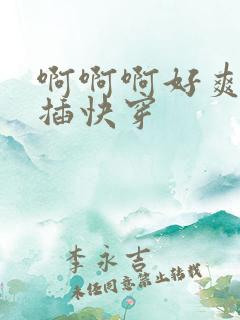 啊啊啊好爽
插快穿
李永吉
未经同意禁止转载